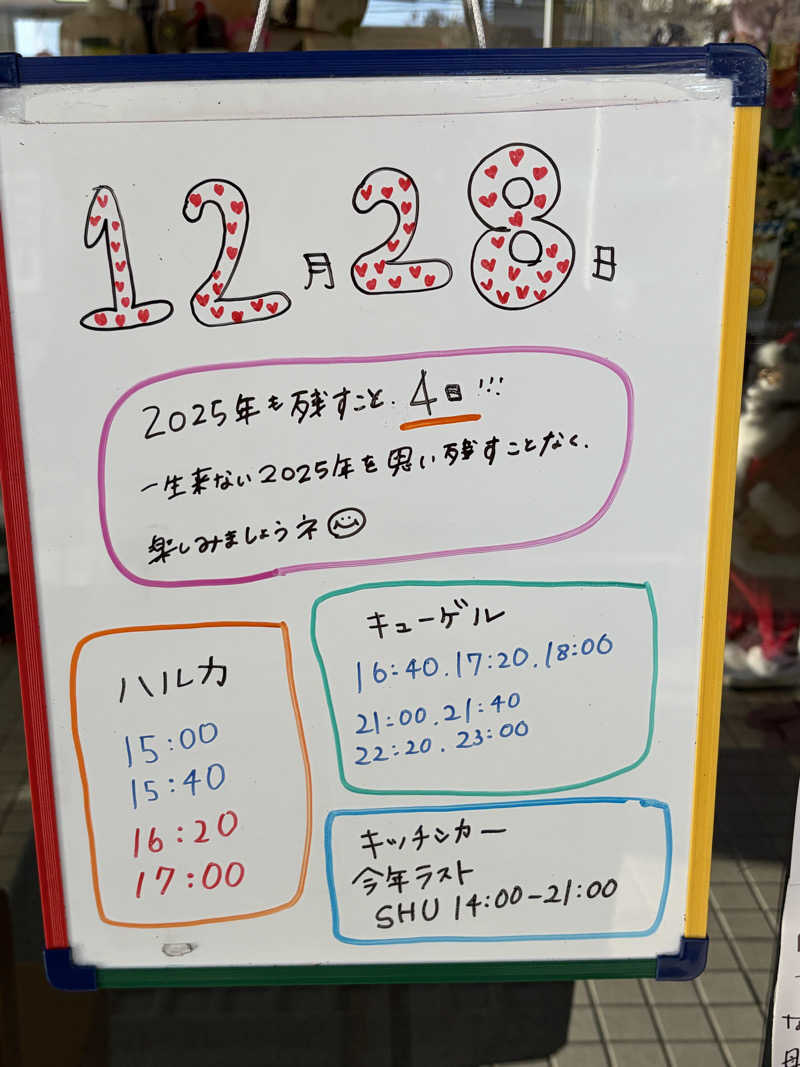 12月28日
2025年も残すこと、4日!!!
一生来ない2025年を思い残すことなく、
楽しみましょうネ
ハルカ
15:00
15:40
16:20
17:00
キューゲル
16:40.17:20.18:00
21:00.21:40
22:20.23:00
キッチンカー
今年ラスト
SHU 14:00-21:00